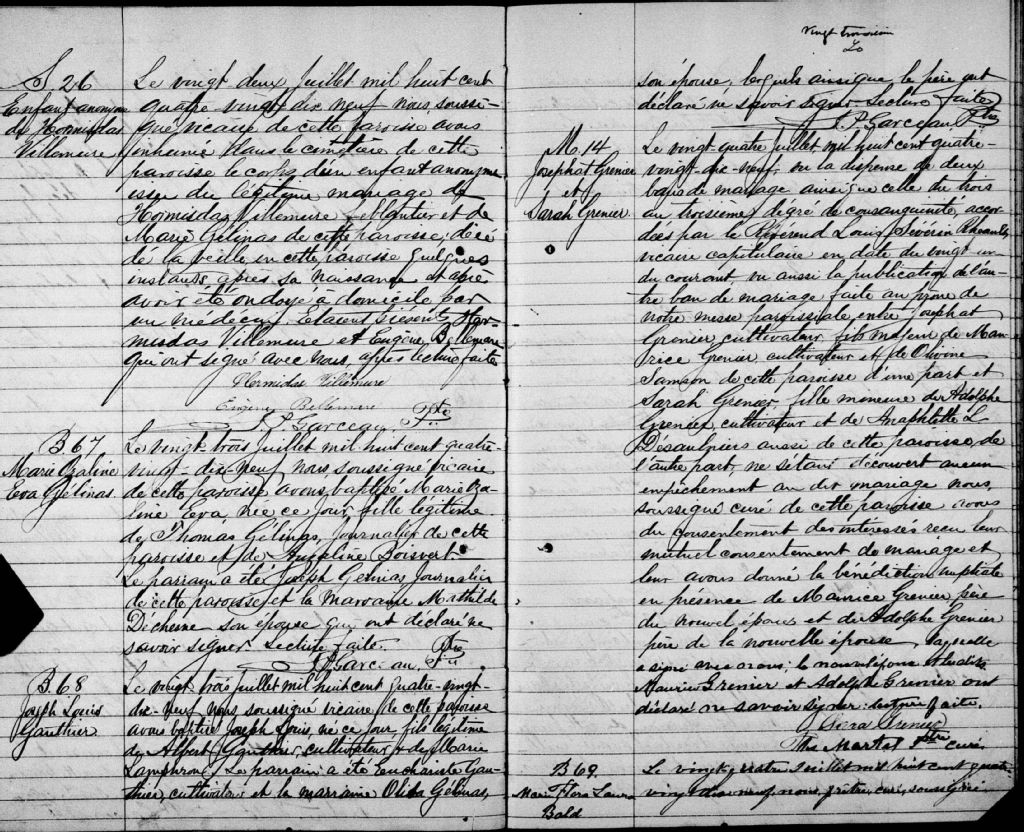 S 26
Enfant anonyme
de Hormisdas
Villemure
Le vingt deux Juillet mil huit cent
quatre vingt dix neuf nous soussi-
gné vicaire de cette paroisse avons
inhumé dans le cimetière de cette
paroisse le corps d'un enfant anonyme
issu du légitime mariage de
Hormisdas Villemure et de
Marie Gélinas de cette paroisse, décédé
de la veille en cette paroisse quelques
instants après sa naissance et après
avoir été ondoyé à domicile par
un médecin. Etaient présents Hor-
misdas Villemure et Eugène Bellemare
qui ont signé avec nous, après lecture faite
Hormidas Villemure
Eugène Bellemare
J. P. Garceau, Ptre
B. 67
Marie Ozaline
Eva Gélinas
Le vingt-trois juillet mil huit cent quatre-
vingt-dix-neuf nous soussigné vicaire
de cette paroisse avons baptisé Marie Oza-
line Eva, née ce jour, fille légitime
de Thomas Gélinas, Journalier de cette
paroisse et de Angeline Boisvert.
Le parrain a été Joseph Gélinas Journalier
de cette paroisse et la marraine Mathilde
Déchesne son épouse qui ont déclaré ne
savoir signer. Lecture faite.
J. P. Garceau, Ptre
B. 68
Joseph Louis
Gauthier
Le vingt-trois Juillet mil huit cent quatre-vingt-
dix-neuf nous soussigné vicaire de cette paroisse
avons baptisé Joseph Louis, né ce jour, fils légitime
de Albert Gauthier, cultivateur & de Marie
Lamphron. Le parrain a été Euchariste Gau-
thier, cultivateur et la marraine Olida Gélinas,
vingt troisième
son épouse, lesquels ainsi que le père ont
déclaré ne savoir signer. Lecture faite
J. P. Garceau, Ptre
M. 14
Josephat Grenier
et
Sarah Grenier
Le vingt-quatre juillet mil huit cent quatre-
vingt-dix-neuf, vu la dispense de deux
bans de mariage ainsi que celle du trois
au troisième dégré de consanguinité, accor-
dées par le Révérend Louis Séverin Rheault,
vicaire capitulaire en date du vingt un
du courant, vu aussi la publication de l'au-
tre ban de mariage faite au prone de
notre messe paroissiale entre Josephat
Grenier, cultivateur, fils majeur de Mau-
rice Grenier cultivateur et de Olivine
Samson de cette paroisse d'une part et
Sarah Grenier, fille mineure de Adolphe
Grenier, cultivateur et de L.
Désaulniers aussi de cette paroisse de
l'autre part, ne s'étant découvert aucun
empêchement au dit mariage nous,
soussigné curé de cette paroisse avons
du consentement des intéressés reçu leur
mutuel consentement de mariage et
leur avons donné la bénédiction nuptiale
en présence de Maurice Grenier, père
du nouvel époux et de Adolphe Grenier
père de la nouvelle épouse, laquelle
a signé avec nous; le nouvel époux et les dits
Maurice Grenier et Adolphe Grenier ont
déclaré ne savoir signer. Lecture faite.
Grenier
Martel Ptre curé
B 69.
Marie Flora Laura
Bald
Le vingt-quatre Juillet mil huit cent quatre-
vingt dix neuf, nous, prêtre, curé, soussigné